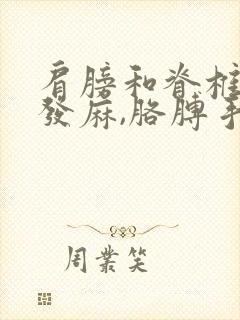 肩膀和脊椎
發麻,胳膊手
周業笑